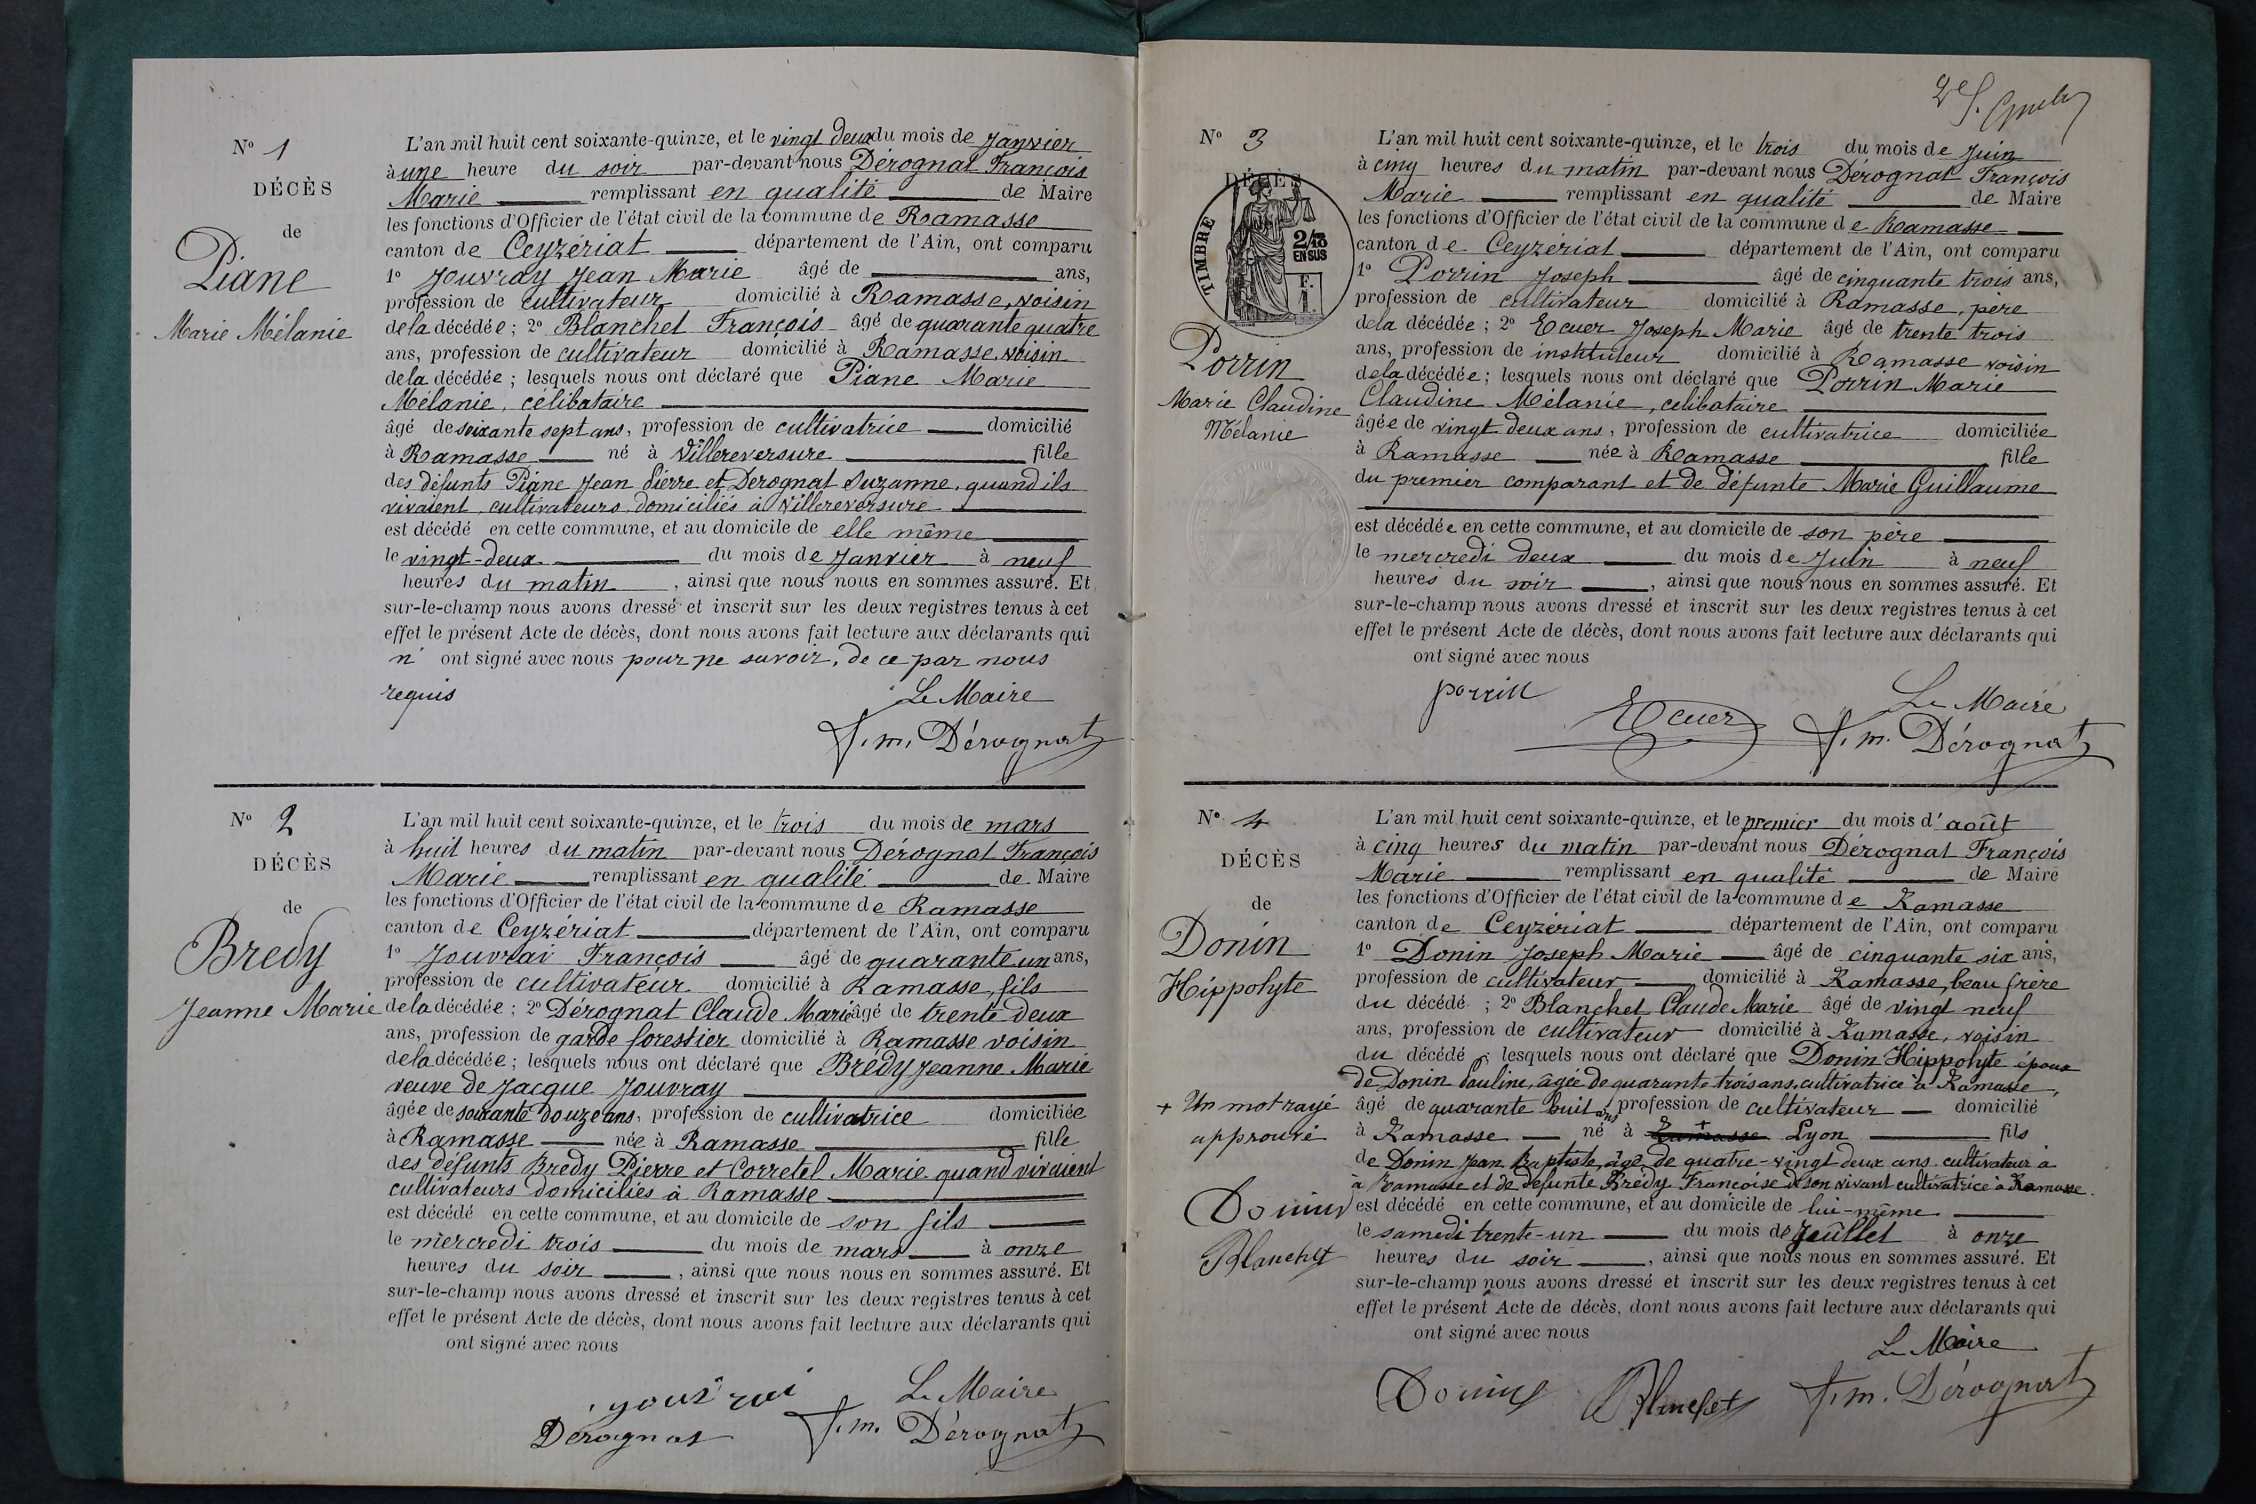 N° 1
DÉCÈS
de
Piane
Marie Mélanie
L'an mil huit cent soixante-quinze, et le vingt deux du mois de Janvier
à une heure du soir par-devant nous Dérognat François
Marie remplissant en qualité de Maire
les fonctions d'Officier de l'état civil de la commune de Ramasse
canton de Ceyzériat département de l'Ain, ont comparu
1° Jouvray Jean Marie âgé de ans,
profession de cultivateur domicilié à Ramasse, voisin
de la décédée ; 2° Blanchet François âgé de quarante quatre
ans, profession de cultivateur domicilié à Ramasse, voisin
de la décédée ; lesquels nous ont déclaré que Piane Marie
Mélanie, célibataire
âgé de soixante sept ans, profession de cultivatrice domicilié
à Ramasse né à Villereversure fille
des défunts Piane Jean Pierre et Derognat Suzanne, quand ils
vivaient, cultivateurs domiciliés à Villereversure
est décédé en cette commune, et au domicile de elle même
le vingt-deux du mois de Janvier à neuf
heures du matin, ainsi que nous nous en sommes assuré. Et
sur-le-champ nous avons dressé et inscrit sur les deux registres tenus à cet
effet le présent Acte de décès, dont nous avons fait lecture aux déclarants qui
n' ont signé avec nous pour ne savoir, de ce par nous
requis
Le Maire
f. m. Dérognat
N° 2
DÉCÈS
de
Bredy
Jeanne Marie
L'an mil huit cent soixante-quinze, et le trois du mois de mars
à huit heures du matin par-devant nous Dérognat François
Marie remplissant en qualité de Maire
les fonctions d'Officier de l'état civil de la commune de Ramasse
canton de Ceyzériat département de l'Ain, ont comparu
1° Jouvrai François âgé de quarante un ans,
profession de cultivateur domicilié à Ramasse, fils
de la décédée ; 2° Dérognat Claude Marie âgé de trente deux
ans, profession de garde forestier domicilié à Ramasse voisin
de la décédée ; lesquels nous ont déclaré que Brédy Jeanne Marie
veuve de Jacque Jouvray
âgée de soixante douze ans, profession de cultivatrice domiciliée
à Ramasse née à Ramasse fille
des défunts Bredy Pierre et Corretel Marie quand vivaient
cultivateurs domiciliés à Ramasse
est décédé en cette commune, et au domicile de son fils
le mercredi trois du mois de mars à onze
heures du soir, ainsi que nous nous en sommes assuré. Et
sur-le-champ nous avons dressé et inscrit sur les deux registres tenus à cet
effet le présent Acte de décès, dont nous avons fait lecture aux déclarants qui
ont signé avec nous
Le Maire
Dérognat f. m. Dérognat
N° 3
DÉCÈS
TIMBRE
2/10
EN SUS
F.
1.
Porrin
Marie Claudine
Mélanie
L'an mil huit cent soixante-quinze, et le trois du mois de Juin
à cinq heures du matin par-devant nous Dérognat François
Marie remplissant en qualité de Maire
les fonctions d'Officier de l'état civil de la commune de Ramasse
canton de Ceyzériat département de l'Ain, ont comparu
1° Porrin Joseph âgé de cinquante trois ans,
profession de cultivateur domicilié à Ramasse, père
de la décédée ; 2° Ecuer Joseph Marie âgé de trente trois
ans, profession de instituteur domicilié à Ramasse voisin
de la décédée ; lesquels nous ont déclaré que Porrin Marie
Claudine Mélanie, celibataire
âgée de vingt deux ans, profession de cultivatrice domiciliée
à Ramasse née à Ramasse fille
du premier comparant et de défunte Marie Guillaume
est décédée en cette commune, et au domicile de son père
le mercredi deux du mois de Juin à neuf
heures du soir, ainsi que nous nous en sommes assuré. Et
sur-le-champ nous avons dressé et inscrit sur les deux registres tenus à cet
effet le présent Acte de décès, dont nous avons fait lecture aux déclarants qui
ont signé avec nous
porrin Le Maire
Ecuer f. m. Dérognat
N° 4
DÉCÈS
de
Donin
Hippolyte
+ Un mot rayé
approuvé
Donin
Blanchet
L'an mil huit cent soixante-quinze, et le premier du mois d'août
à cinq heures du matin par-devant nous Dérognat François
Marie remplissant en qualité de Maire
les fonctions d'Officier de l'état civil de la commune de Ramasse
canton de Ceyzériat département de l'Ain, ont comparu
1° Donin Joseph Marie âgé de cinquante six ans,
profession de cultivateur domicilié à Ramasse, beau frère
du décédé ; 2° Blanchet Claude Marie âgé de vingt neuf
ans, profession de cultivateur domicilié à Ramasse, voisin
du décédé ; lesquels nous ont déclaré que Donin Hippolyte époux
de Donin Pauline, âgée de quarante trois ans, cultivatrice à Ramasse,
âgé de quarante huit ans, profession de cultivateur domicilié
à Ramasse né à Ramasse + Lyon fils
de Donin Jean Baptiste, âgé de quatre-vingt deux ans cultivateur à
à Ramasse et de défunte Brédy Françoise de son vivant cultivatrice à Ramasse.
est décédé en cette commune, et au domicile de lui-même
le samedi trente-un du mois de Juillet à onze
heures du soir, ainsi que nous nous en sommes assuré. Et
sur-le-champ nous avons dressé et inscrit sur les deux registres tenus à cet
effet le présent Acte de décès, dont nous avons fait lecture aux déclarants qui
ont signé avec nous
Le Maire
Donin Blanchet f. m. Dérognat